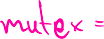 mutex =